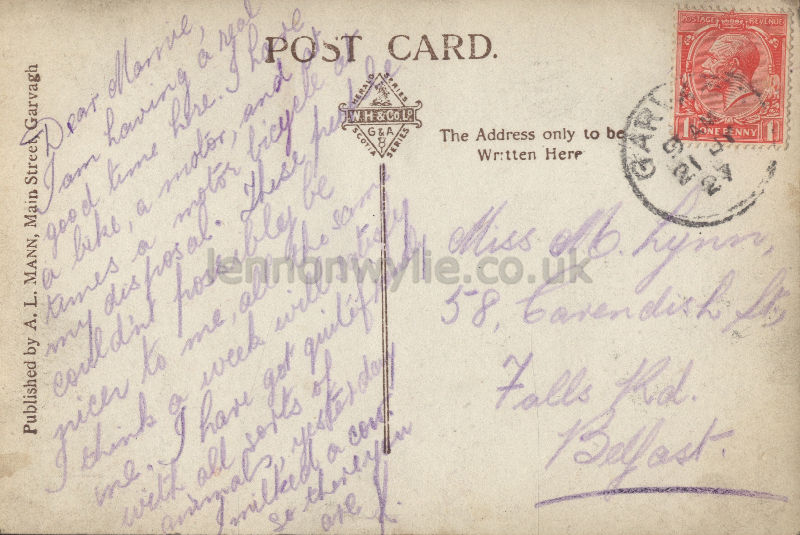 POST CARD.
Published by A. L. MANN, Main Street, Garvagh
HERALD SERIES
W.H. & Co Ld
G & A
8
SCOTIA SERIES
The Address only to be
Written Here
POSTAGE REVENUE
1 ONE PENNY 1
GARV
21
27
Dear Mannie,
I am having a real
good time here. I have
a bike, a motor, and at
times a motor bicycle at
my disposal. These people
couldn't possibly be
nicer to me, all the same
I think a week will satisfy
me. I have got quite friendly
with all sorts of
animals, yesterday
I milked a cow
so there you
are
Miss M. Lynn,
58, Cavendish St,
Falls Rd.
Belfast.
lennonwylie.co.uk